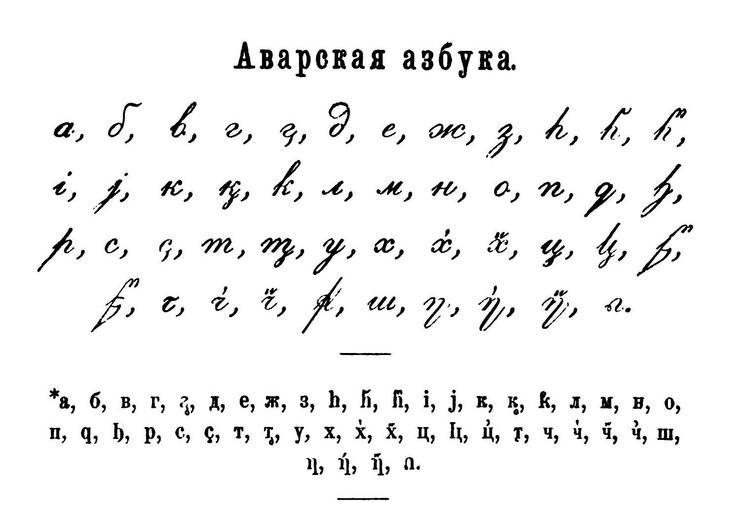 Аварская азбука.
а, б, в, г, г̡, д, е, ж, з, һ, һ̄, һ̓,
і, ј, к, қ, k, л, м, н, о, п, q, ђ,
р, с, ҫ, т, т̡, у, х, х̓, х̋, ц,
т, ч̓, ч̋, ш, ƞ, ƞ̓, ƞ̋,
*а, б, в, г, г̡, д, е, ж, з, һ, һ̄, һ̓, і, ј, к, қ, k, л, м, н, о,
п, q, ђ, р, с, ҫ, т, т̡, у, х, х̓, х̋, ц, ц̓, ч, ч̓, ч̋, ш,
ƞ, ƞ̓, ƞ̋,